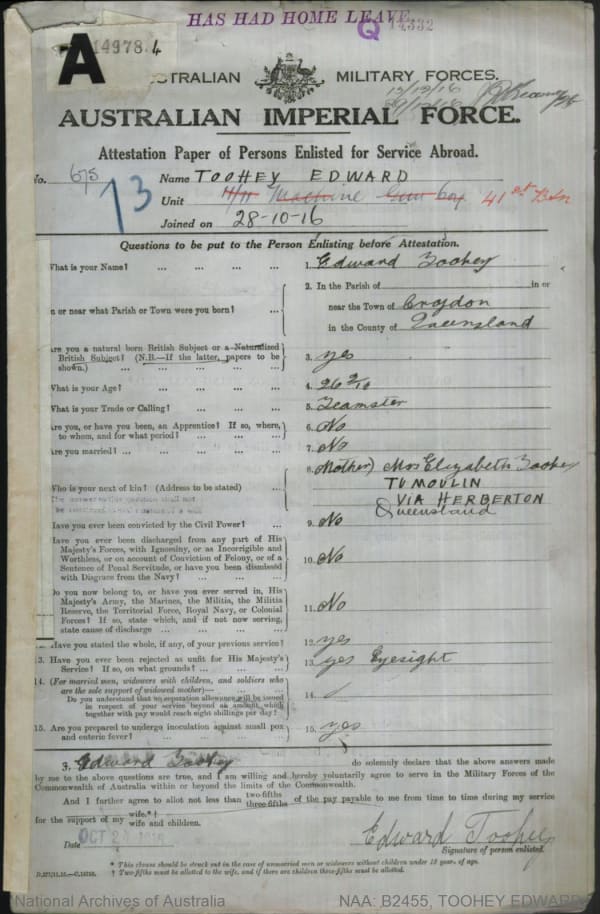 HAS HAD HOME LEAVE
14978 4
A
AUSTRALIAN MILITARY FORCES.
12/12/16
AUSTRALIAN IMPERIAL FORCE.
Attestation Paper of Persons Enlisted for Service Abroad.
No. 675 Name TOOHEY EDWARD
13
Unit 11/11 Machine Gun Coy 41st Bn
Joined on 28-10-16
Questions to be put to the Person Enlisting before Attestation.
What is your Name? ... ... ... ... 1. Edward Toohey
In or near what Parish or Town were you born? ... 2. In the Parish of in or
near the Town of Croydon
in the County of Queensland
Are you a natural born British Subject or a Naturalised
British Subject? (N.B.—If the latter, papers to be
shown.) ... ... ... ... 3. yes
What is your Age? ... ... ... ... 4. 26 2/12
What is your Trade or Calling? ... ... ... 5. Teamster
Are you, or have you been, an Apprentice? If so, where,
to whom, and for what period? ... ... ... 6. No
Are you married? ... ... ... ... 7. No
Who is your next of kin? (Address to be stated) ... 8. Mother) Mrs Elizabeth Toohey
TUMOULIN
VIA HERBERTON
Queensland
Have you ever been convicted by the Civil Power? ... 9. No
Have you ever been discharged from any part of His
Majesty's Forces, with Ignominy, or as Incorrigible and
Worthless, or on account of Conviction of Felony, or of a
Sentence of Penal Servitude, or have you been dismissed
with Disgrace from the Navy? ... ... ... 10. No
Do you now belong to, or have you ever served in, His
Majesty's Army, the Marines, the Militia, the Militia
Reserve, the Territorial Force, Royal Navy, or Colonial
Forces? If so, state which, and if not now serving,
state cause of discharge ... ... ... 11. No
12. Have you stated the whole, if any, of your previous service? 12. yes
13. Have you ever been rejected as unfit for His Majesty's
Service? If so, on what grounds? ... ... ... 13. yes Eyesight
14. (For married men, widowers with children, and soldiers who
are the sole support of widowed mother)—
Do you understand that no separation allowance will be issued
in respect of your service beyond an amount which
together with pay would reach eight shillings per day? 14.
15. Are you prepared to undergo inoculation against small pox
and enteric fever? ... ... ... ... 15. yes
I, Edward Toohey do solemnly declare that the above answers made
by me to the above questions are true, and I am willing and hereby voluntarily agree to serve in the Military Forces of the
Commonwealth of Australia within or beyond the limits of the Commonwealth.
And I further agree to allot not less than two-fifths three-fifths of the pay payable to me from time to time during my service
for the support of my wife.*† wife and children.
Date OCT 1916
Edward Toohey
Signature of person enlisted.
* This clause should be struck out in the case of unmarried men or widowers without children under 18 years of age.
† Two-fifths must be allotted to the wife, and if there are children three-fifths must be allotted.
National Archives of Australia NAA: B2455, TOOHEY EDWARD